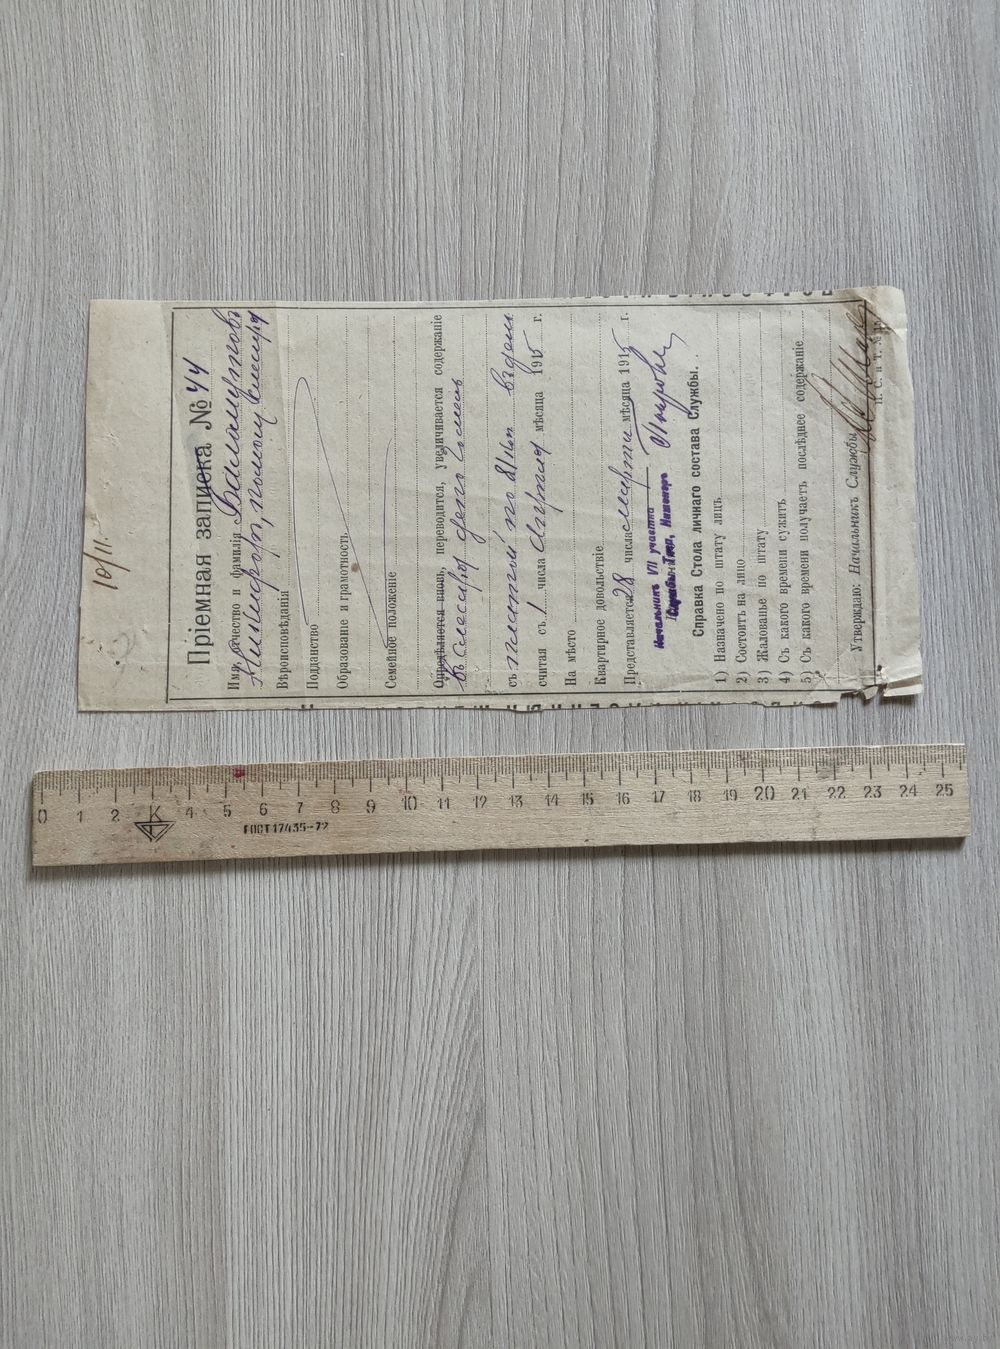 10/11
Пріемная записка № 44
Имя, отчество и фамилія
Никифоръ,
Вѣроисповѣданія
Подданство
Образованіе и грамотность
Семейное положеніе
Опредѣляется вновь, переводится, увеличивается содержаніе
въ слесаря депо Гомель
съ платой по въ день
считая съ 1 числа Апрѣля мѣсяца 1915 г.
На мѣсто
Квартирное довольствіе
Представляетъ 28 числа марта мѣсяца 1915 г.
Начальникъ VII участка
Службы Тяги, Инженеръ
Справка Стола личнаго состава Службы.
1) Назначено по штату лицъ
2) Состоитъ на лицо
3) Жалованье по штату
4) Съ какого времени служитъ
5) Съ какого времени получаетъ послѣднее содержаніе
Утверждаю: Начальникъ Службы
0 1 2 К 4 5 6 7 8 9 10 11 12 13 14 15 16 17 18 19 20 21 22 23 24 25
ГОСТ 17435-72